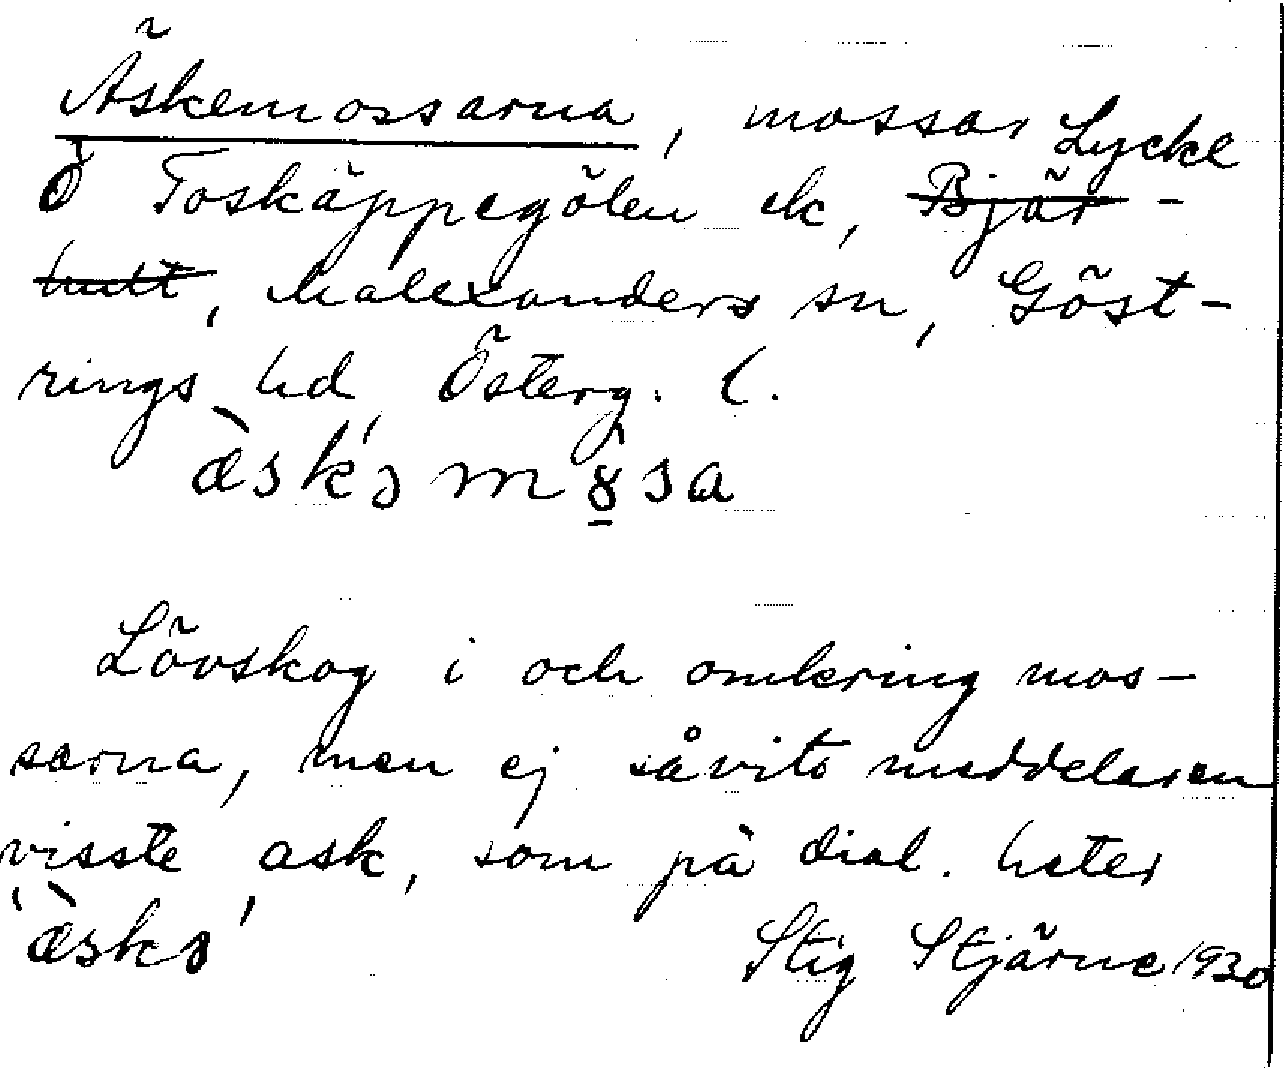 Äskemossarna, mossar Lycke
Ö Toskäppegölen ek, Bjär-
hult, Malexanders sn, Göst-
rings hd, Österg. l.
Lövskog i och omkring mos-
sarna, men ej såvitt meddelaren
visste ask, som på dial. heter
Stig Stjärne 1930